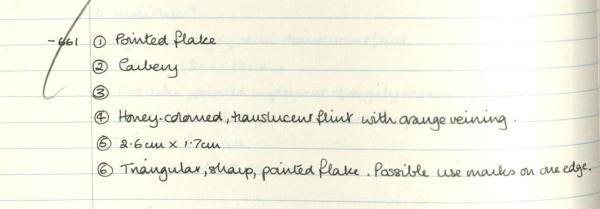 -661 ① Pointed flake
②
③
④ Honey-coloured, translucent flint with orange veining.
⑤ 2.6cm x 1.7cm
⑥ Triangular, sharp, pointed flake. Possible use marks on one edge.